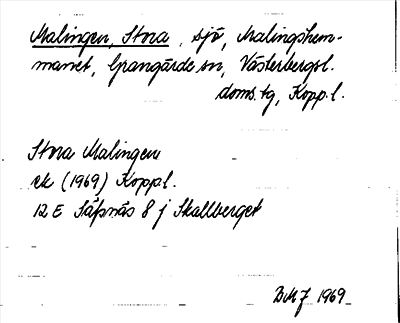 Malingen, Stora, sjö, Malingshem-
manet, Grangärde sn, Västerbergsl.
doms.tg, Kopp.l.
Stora Malingen
ek (1969) Koppl.
12 E Säfsnäs 8 j Skallberget
BMJ 1969